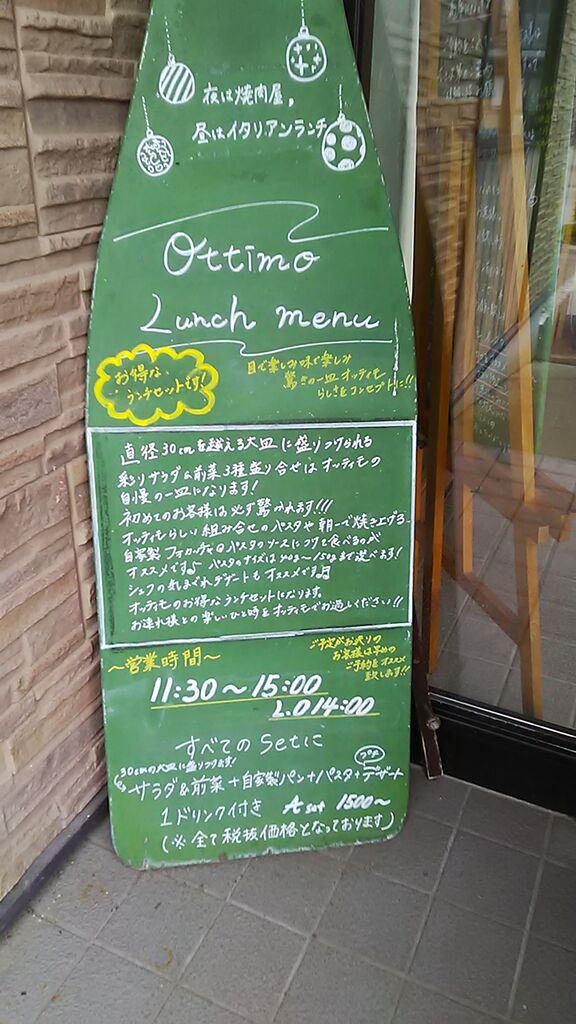 夜は焼肉屋,
昼はイタリアンランチ
Ottimo
Lunch menu
お得な
ランチセットです!
目で楽しみ味で楽しみ
驚きの一皿オッティモ
らしさをコンセプトに!!
直径30cmを越える大皿に盛りつけられる
彩りサラダ&前菜3種盛り合せはオッティモの
自慢の一皿になります!
初めてのお客様は必ず驚かれます!!!
オッティモらしい組み合せのパスタや朝一で焼き上げる
自家製フォカッチャはパスタのソースにつけて食べるのが
オススメです♪ パスタのサイズは40g~150gまで選べます!
シェフの気まぐれデザートもオススメです♬
オッティモのお得なランチセットになります。
お連れ様との楽しいひと時をオッティモでお過しください!!
~営業時間~
ご予定がお決りの
お客様は早めの
ご予約をオススメ
致します!!
11:30~15:00
L.O 14:00
すべてのSetに
30cmの大皿に盛りつけます!
サラダ&前菜+自家製パン+パスタ+デザート
1ドリンク付き A set 1500~
(※全て税抜価格となっております)